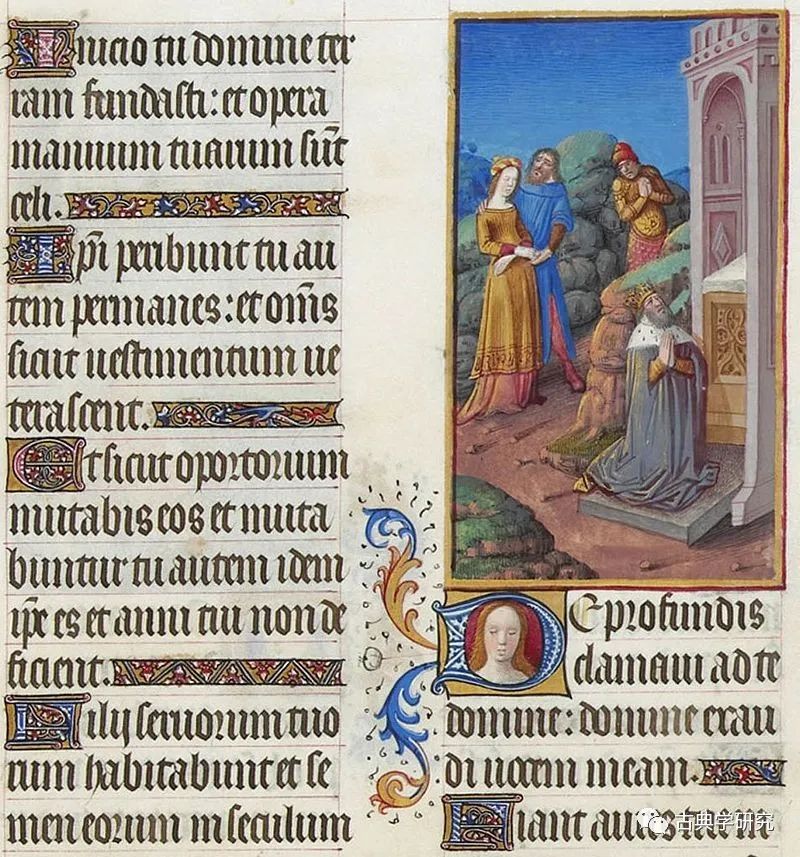 Inicio tu domine ter
ram fundasti: et opera
manuum tuarum sūt
celi.
Ip̄i peribunt tu au
tem permanes: et om̄s
sicut uestimentum ue
terascent.
Et sicut oportorium
mutabis eos et muta
buntur tu autem idem
ip̄e es et anni tui non de
ficient.
Filij seruorum tuo
rum habitabunt et se
men eorum in seculum
De profundis
clamaui ad te
domine: domine exau
di uocem meam.
Fiant aures tue in
古典学研究